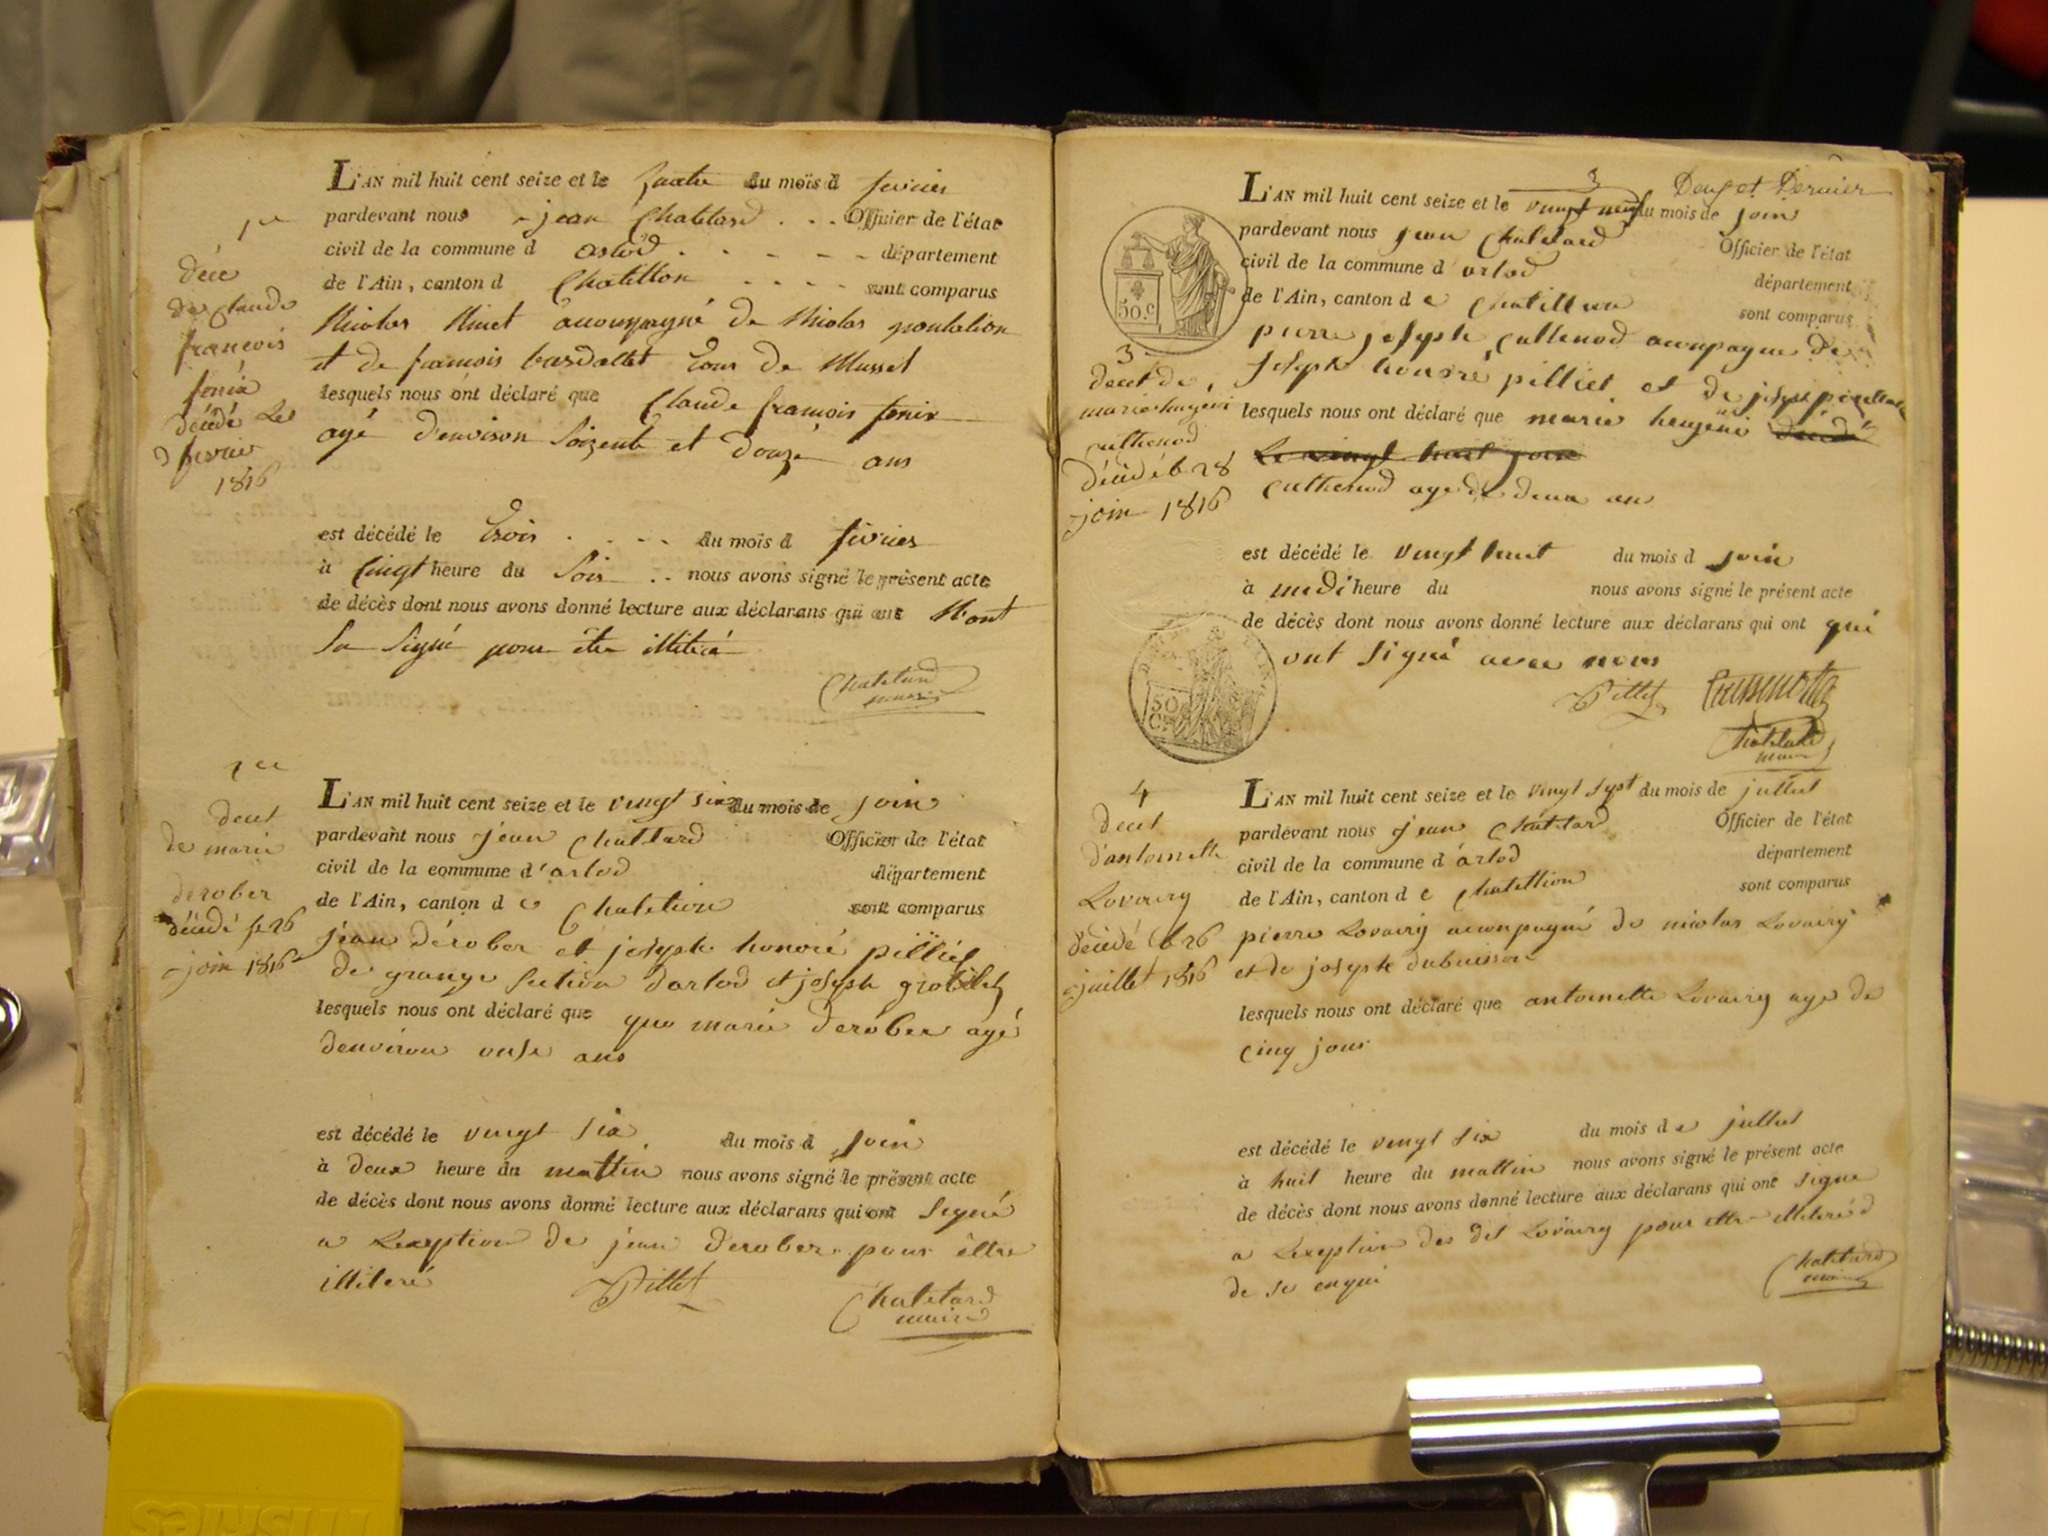 1er
décè
de Claude
françois
fenix
décédé Le 3
fevrier
1816
L'AN mil huit cent seize et le quatre du mois d fevrier
pardevant nous jean Chatelard Officier de l'état
civil de la commune d arlod département
de l'Ain, canton d Chatillon sont comparus
Nicolas Muset accompagné de Nicolas
et de francois tous de Mussel
lesquels nous ont déclaré que Claude francois fenix
agé d'environ Soizente et douze ans
est décédé le trois du mois d fevrier
à Cinqt heure du Soir nous avons signé le présent acte
de décès dont nous avons donné lecture aux déclarans qui ont N'ont
Su Signé pour être illitéré
Chatelard
maire
decet
de marie
derober
décédé le 26
join 1816
L'AN mil huit cent seize et le vingt six du mois de join
pardevant nous jean Chattard Officier de l'état
civil de la commune d'arlod département
de l'Ain, canton d e Chatelion sont comparus
jean dérober et joseph honoré pilliet
de grange section darlod et joseph
lesquels nous ont déclaré que que marie derober agé
denviron onse ans
est décédé le vingt six du mois d join
à deux heure du mattin nous avons signé le présent acte
de décès dont nous avons donné lecture aux déclarans qui ont Signé
a Lexeption de jean derober pour êttre
illiteré
Pillet
Chatelard
maire
3 Deux et Dernier
50.c
L'AN mil huit cent seize et le vingt neuf du mois de join
pardevant nous jean Chatelard Officier de l'état
civil de la commune d'arlod département
de l'Ain, canton d e Chatillion sont comparus
pierre joseph cuthenod acompagne de
joseph honoré pilliet et de joseph
lesquels nous ont déclaré que marie heugenie décédé
Le vingt huit join
cuthenod age de deux an
3
decet de
marie heugenie
cuthenod
décédé le 28
join 1816
est décédé le vingt huit du mois d join
à midi heure du nous avons signé le présent acte
de décès dont nous avons donné lecture aux déclarans qui ont qui
ont signé avec nous
50
C.
Pillet
Chatelard
maire
4
decet
d'antoinette
Lovairy
décédé le 26
juillet 1816
L'AN mil huit cent seize et le vingt sept du mois de jullet
pardevant nous jean Chatelard Officier de l'état
civil de la commune d'arlod département
de l'Ain, canton d e Chatellion sont comparus
pierre Lovairy acompagné de nicolas Lovairy
et de joseph dubuisson
lesquels nous ont déclaré que antoinette Lovairy age de
cinq jour
est décédé le vingt six du mois d e jullet
à huit heure du mattin nous avons signé le présent acte
de décès dont nous avons donné lecture aux déclarans qui ont signe
a Lexeption des dit Lovairy pour ettre
de se enqui
Chatelard
maire